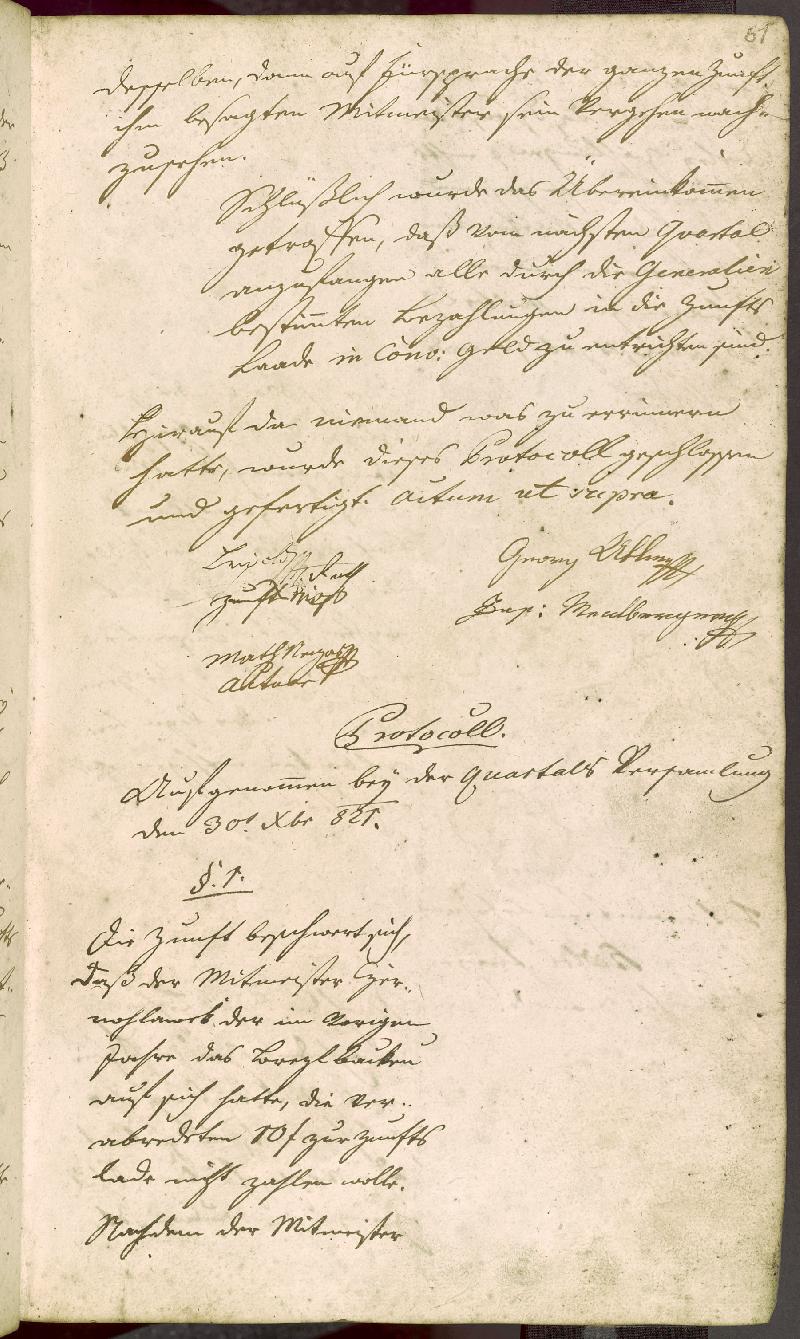 81
desselben, dann auf Fürsprache der ganzen Zunft
ihm besagten Mitmeister sein Vergehen nach-
zusehen.
Schlüßlich wurde das Übereinkom̄en
getroffen, daß vom nächsten Quartal
anzufangen alle durch die Generalien
bestim̄ten Bezahlungen in die Zunfts
Laade in Conv: Geld zu entrichten sind.
Hierauf da niemand was zu errinnern
hatte, wurde dieses Protocoll geschlossen
und gefertigt. Actum ut supra.
Georg
Zunft
Math
Protocoll.
Aufgenom̄en bey der Quartals Versam̄lung
den 30t Xbr 821.
§. 1.
Die Zunft beschwert sich,
daß der Mitmeister Her-
der im Vorigen
Jahre das Brezlbacken
auf sich hatte, die ver-
abredeten 10f zur Zunfts
lade nicht zahlen wolle.
Nachdem der Mitmeister